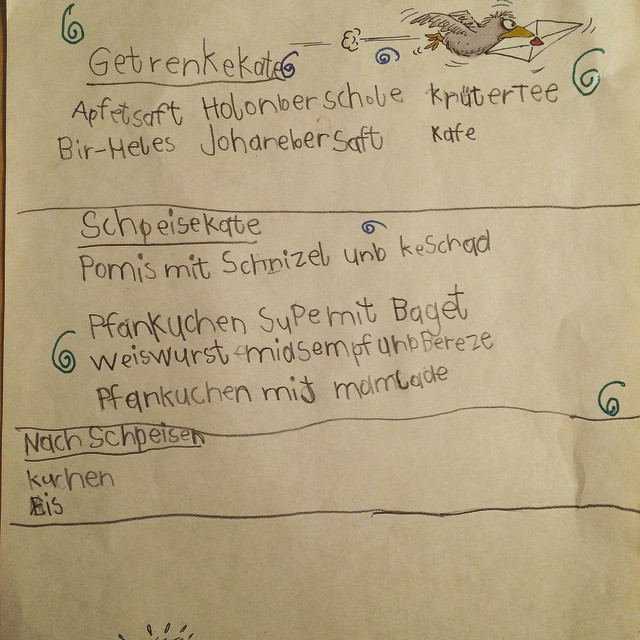 Getrenkekate
Apfelsaft Holonberschole Krütertee
Bir-Heles Johanebersaft Kafe
Schpeisekate
Pomis mit Schnizel unb keschad
Pfankuchen Supe mit Baget
Weiswurst mid sempf unb Bereze
Pfankuchen mit mamlade
Nach Schpeisen
kuchen
Eis